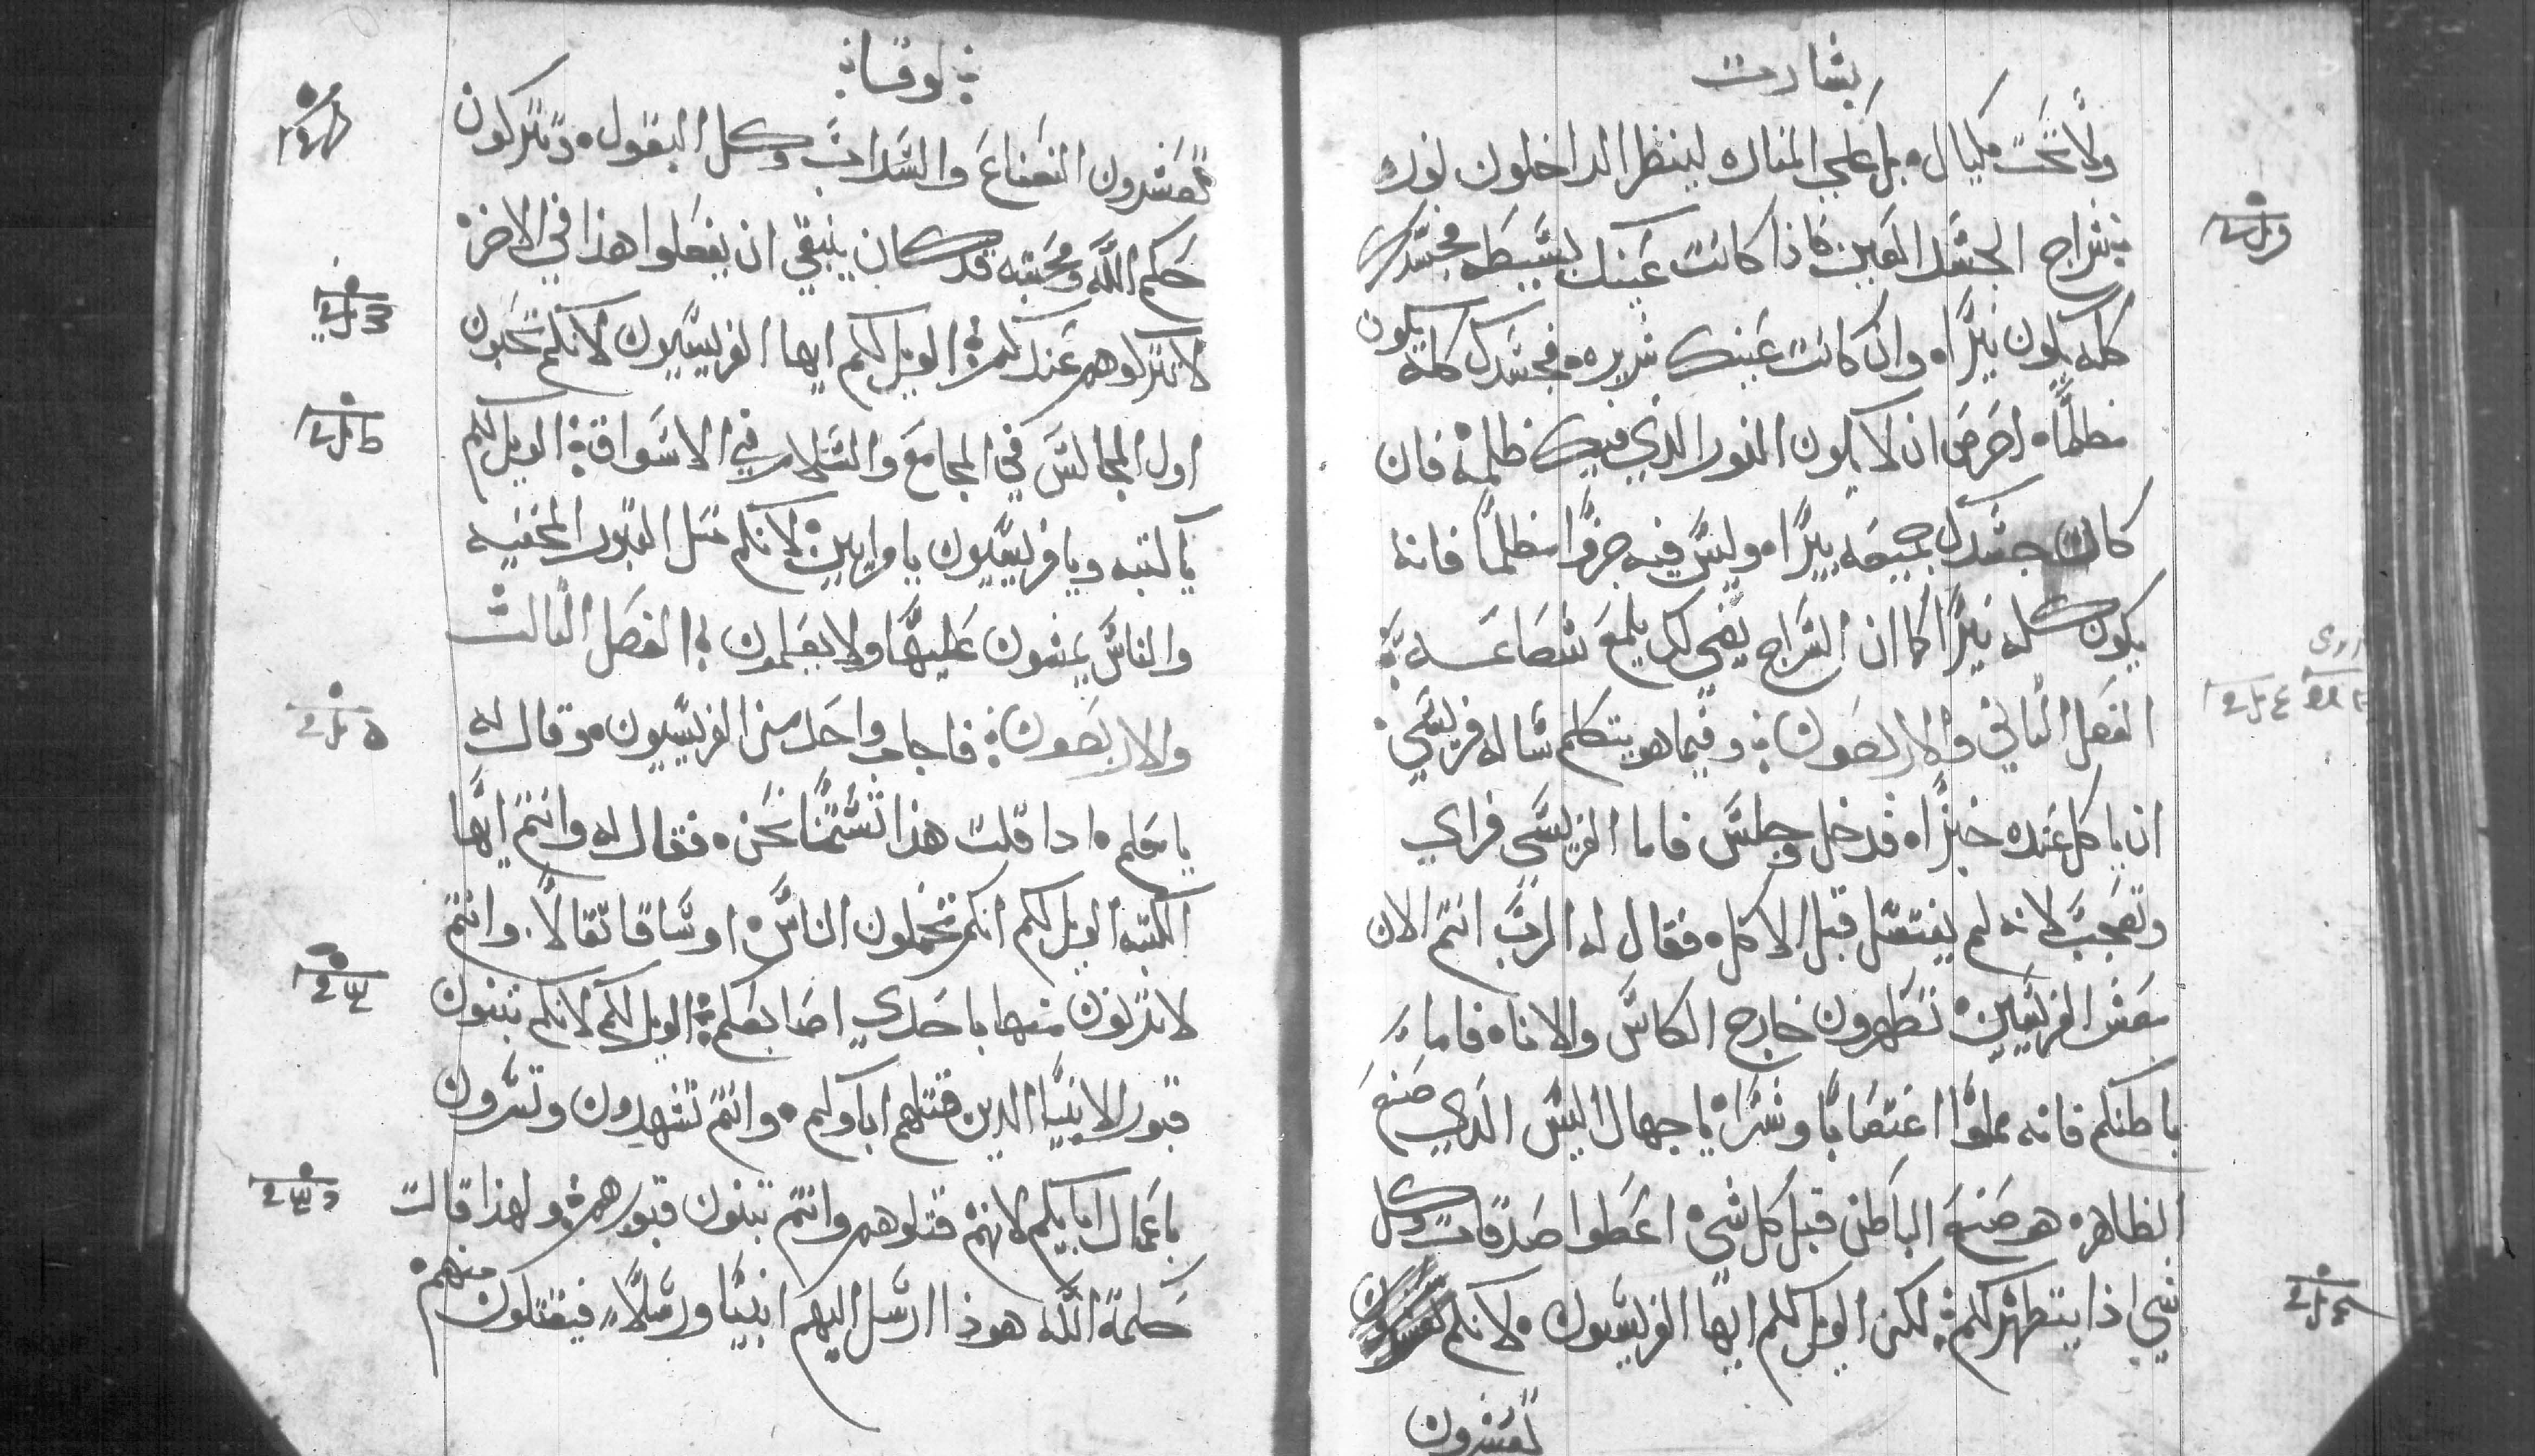 بشارت
ولا تحت مكيال. بل علي المناره لينظر الداخلون نوره
سراج الجسد العين فاذا كانت عينك بسيطه فجسدك
كله يكون نيرًا. وان كانت عينك شريره. فجسدك كله يكون
مظلمًا. احرص ان لا يكون النور الذي فيك ظلمة فان
كان جسدك جميعه نيرًا. وليس فيه جزوًا مظلمًا فانه
يكون كله نيرًا كما ان السراج يضي لك بلمع شعاعـه
الفصل الثاني والاربعون وفيما هو يتكلم ساله فريسي
ان ياكل عنده خبزًا. فدخل وجلس فاما الفريسي فراي
وتعجب لانه لم يغتسل قبل الاكل. فقال له الرب انتم الان
معشر الفريسيين تطهرون خارج الكاس والاناء. فاما
باطنكم فانه مملوًا اغتصابًا وشرًا يا جهال اليس الذي صنع
الظاهر. هو صنع الباطن قبل كل شي اعطوا صدقات وكل
شي اذا يتطهر لكم لكن الويل لكم ايها الفريسيون. لانكم
تعشرون
لوقا
تعشرون النعناع والسداب وكل البقول. وتتركون
حكم الله ومحبته قد كان ينبغي ان يفعلوا هذا في الاخر
لا تتركوهم عندكم الويل لكم ايها الفريسيون لانكم تحبون
اول المجالس في المجامع والسلام في الاسواق الويل لكم
يا كتبه ويا فريسيون يا مراييين لانكم مثل القبور المخفيه
والناس يمشون عليها ولا يعلمون الفصل الثالث
والاربعون فاجاب واحد من الفريسيون. وقال له
يا معلم. اذا قلت هذا تشتمنا نحن. فقال له وانتم ايها
الكتبه الويل لكم انكم تحملون الناس اوساقا ثقالًا. وانتم
لا تدنون منها باحدي اصابعكم الويل لكم لانكم تبنون
قبور الانبيا الدين قتلهم اباوكم. وانتم تشهدون وتسرون
باعمال ابايكم لانهم قتلوهم وانتم تبنون قبورهم ولهذا قالت
حكمة الله هوذا ارسل اليهم انبيا ورسلًا فيقتلون منهم